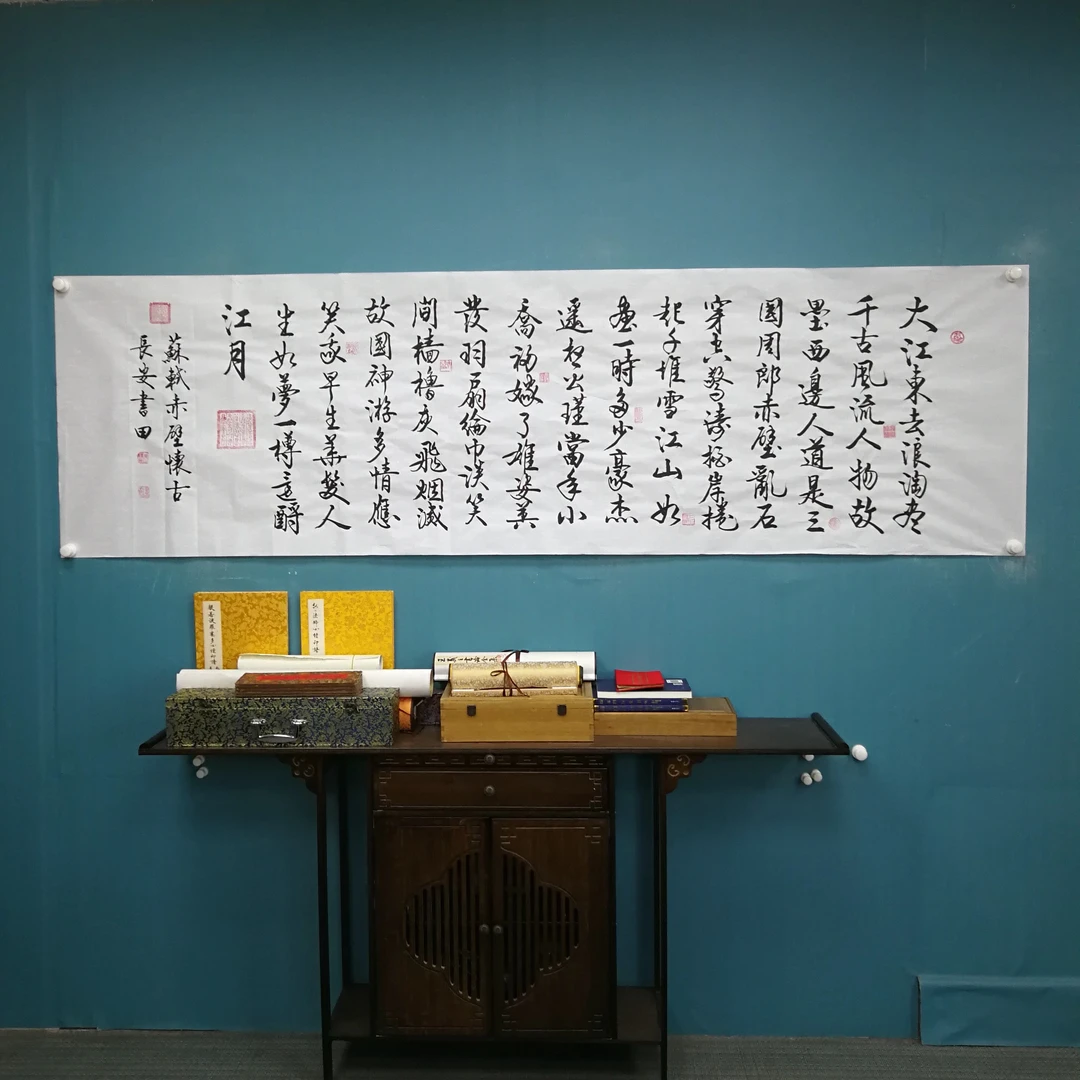 大江東去浪淘盡
千古風流人物故
壘西邊人道是三
國周郎赤壁亂石
穿空驚濤拍岸捲
起千堆雪江山如
畫一時多少豪杰
遥想公瑾當年小
喬初嫁了雄姿英
發羽扇綸巾談笑
間檣櫓灰飛烟滅
故國神游多情應
笑我早生華髮人
生如夢一樽還酹
江月
蘇軾赤壁懷古
長安書田